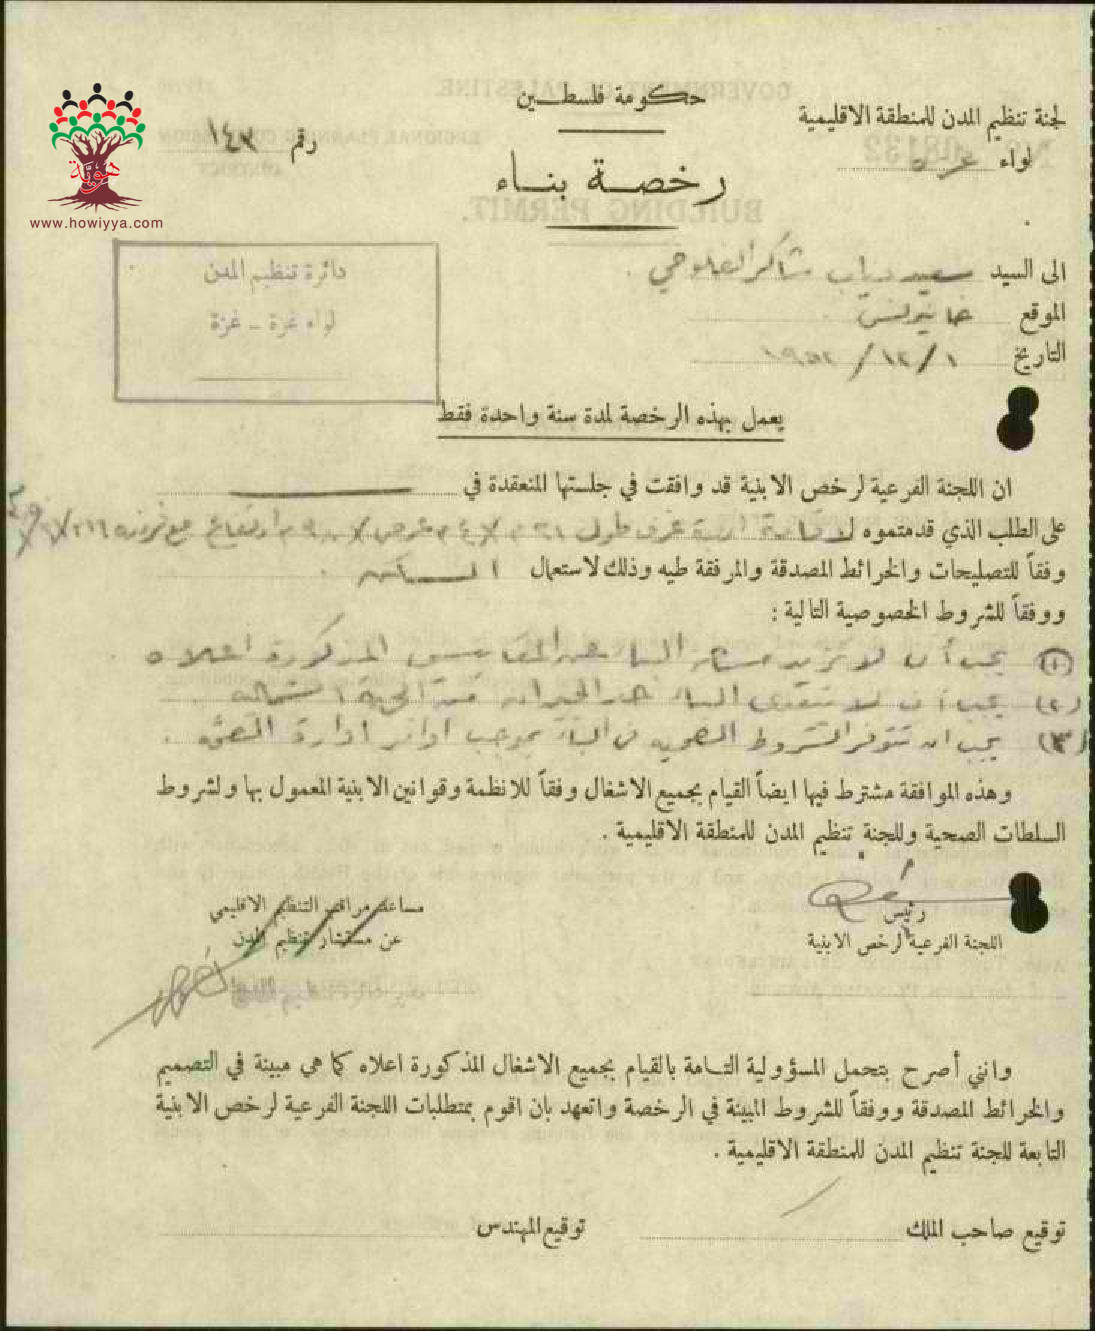 حكومة فلسطين
لجنة تنظيم المدن للمنطقة الاقليمية
لواء غزه
رقم ١٤٣
رخصة بناء
هوية
www.howiyya.com
الى السيد سعيد دياب شاكر الفلوجي .
الموقع خانيونس .
التاريخ ١ / ١٢ / ١٩٥٢
دائرة تنظيم المدن
لواء غزة - غزة
يعمل بهذه الرخصة لمدة سنة واحدة فقط
ان اللجنة الفرعية لرخص الابنية قد وافقت في جلستها المنعقدة في
على الطلب الذي قدمتموه لاقامة غرف طول عرض ارتفاع مع
وفقاً للتصليحات والخرائط المصدقة والمرفقة طيه وذلك لاستعمال السكن .
ووفقاً للشروط الخصوصية التالية :
(١) يجب أن لا تزيد البناء عن المقاييس المذكورة اعلاه .
(٢) يجب أن لا تتعدى البناء حد الجيران من الجهة الشمالية .
(٣) يجب ان تتوفر الشروط الصحية في البناء بموجب اوامر ادارة الصحة .
وهذه الموافقة مشترط فيها ايضاً القيام بجميع الاشغال وفقاً للانظمة وقوانين الابنية المعمول بها ولشروط
السلطات الصحية وللجنة تنظيم المدن للمنطقة الاقليمية .
رئيس
اللجنة الفرعية لرخص الابنية
مساعد مراقب التنظيم الاقليمي
عن مستشار تنظيم المدن
مدير دائرة تنظيم المدن
وانني أصرح بتحمل المسؤولية التامة بالقيام بجميع الاشغال المذكورة اعلاه كما هي مبينة في التصميم
والخرائط المصدقة ووفقاً للشروط المبينة في الرخصة واتعهد بان اقوم بمتطلبات اللجنة الفرعية لرخص الابنية
التابعة للجنة تنظيم المدن للمنطقة الاقليمية .
توقيع صاحب الملك
توقيع المهندس